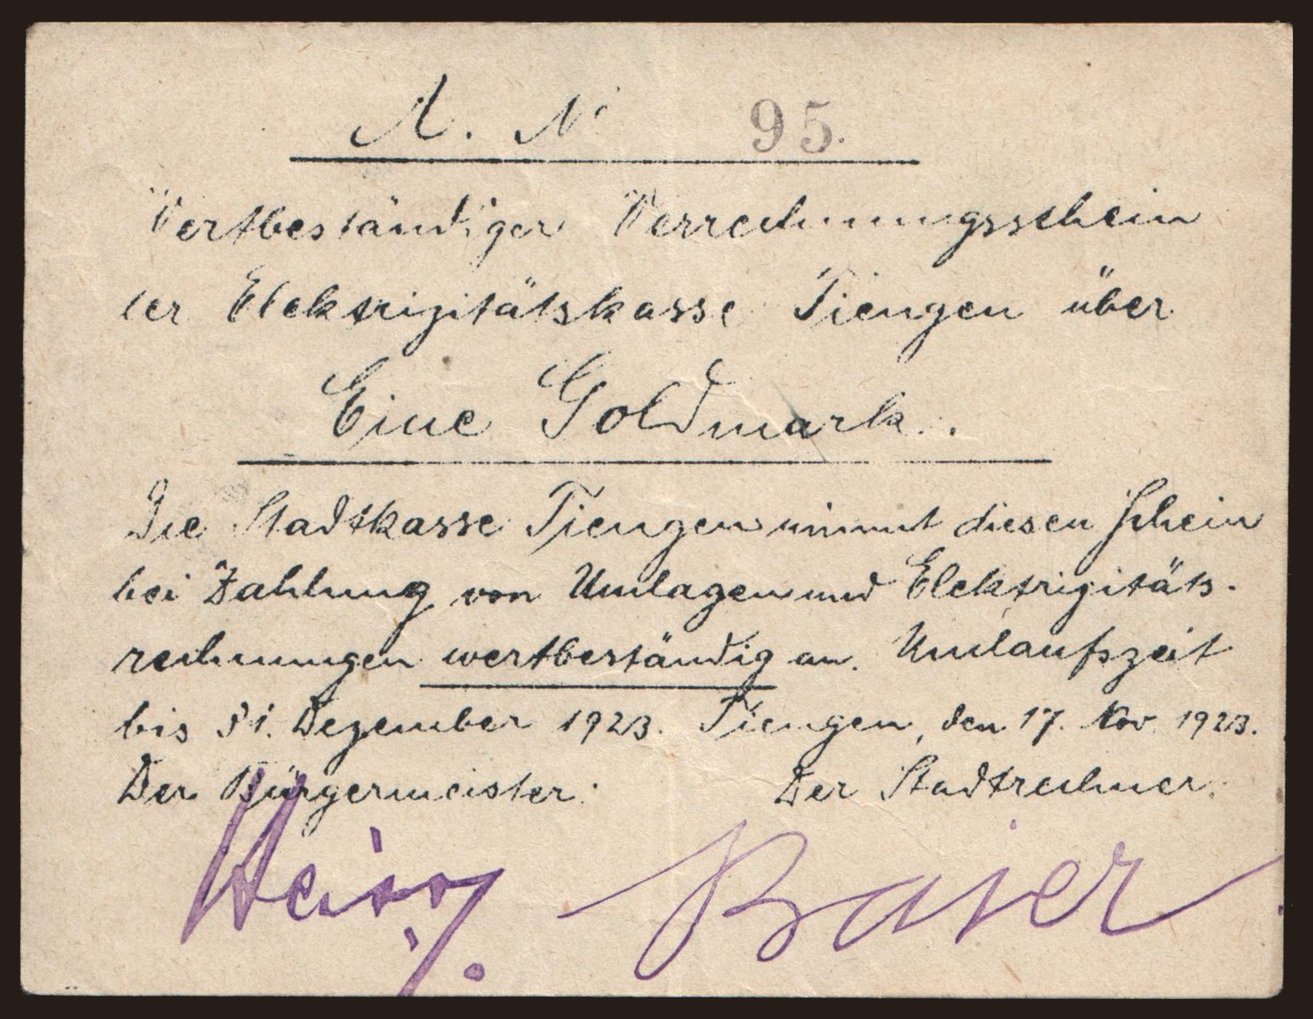 A. No 95.
Wertbeständiger Verrechnungsschein
der Elektrizitätskasse Tiengen über
Eine Goldmark.
Die Stadtkasse Tiengen nimmt diesen Schein
bei Zahlung von Umlagen und Elektrizitäts-
rechnungen wertbeständig an. Umlaufszeit
bis 31. Dezember 1923. Tiengen, den 17. Nov. 1923.
Der Bürgermeister: Der Stadtrechner:
Baier